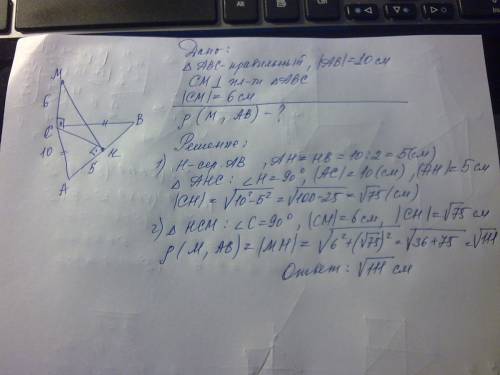 Дано:
△ABC - правильный, |AB|=10см
CM⊥ пл-ти △ABC
|CM|=6см
ρ(M, AB) - ?
Решение:
1) H-сер. AB, AH=HB=10:2=5(см)
△AHC: ∠H=90°, |AC|=10(см), |AH|=5см
|CH|=√10²-5²=√100-25=√75(см)
2) △HCM: ∠C=90°, |CM|=6см, |CH|=√75см
ρ(M, AB)=|MH|=√6²+(√75)²=√36+75=√111
Ответ: √111 см
M
6
C
B
10
H
5
A